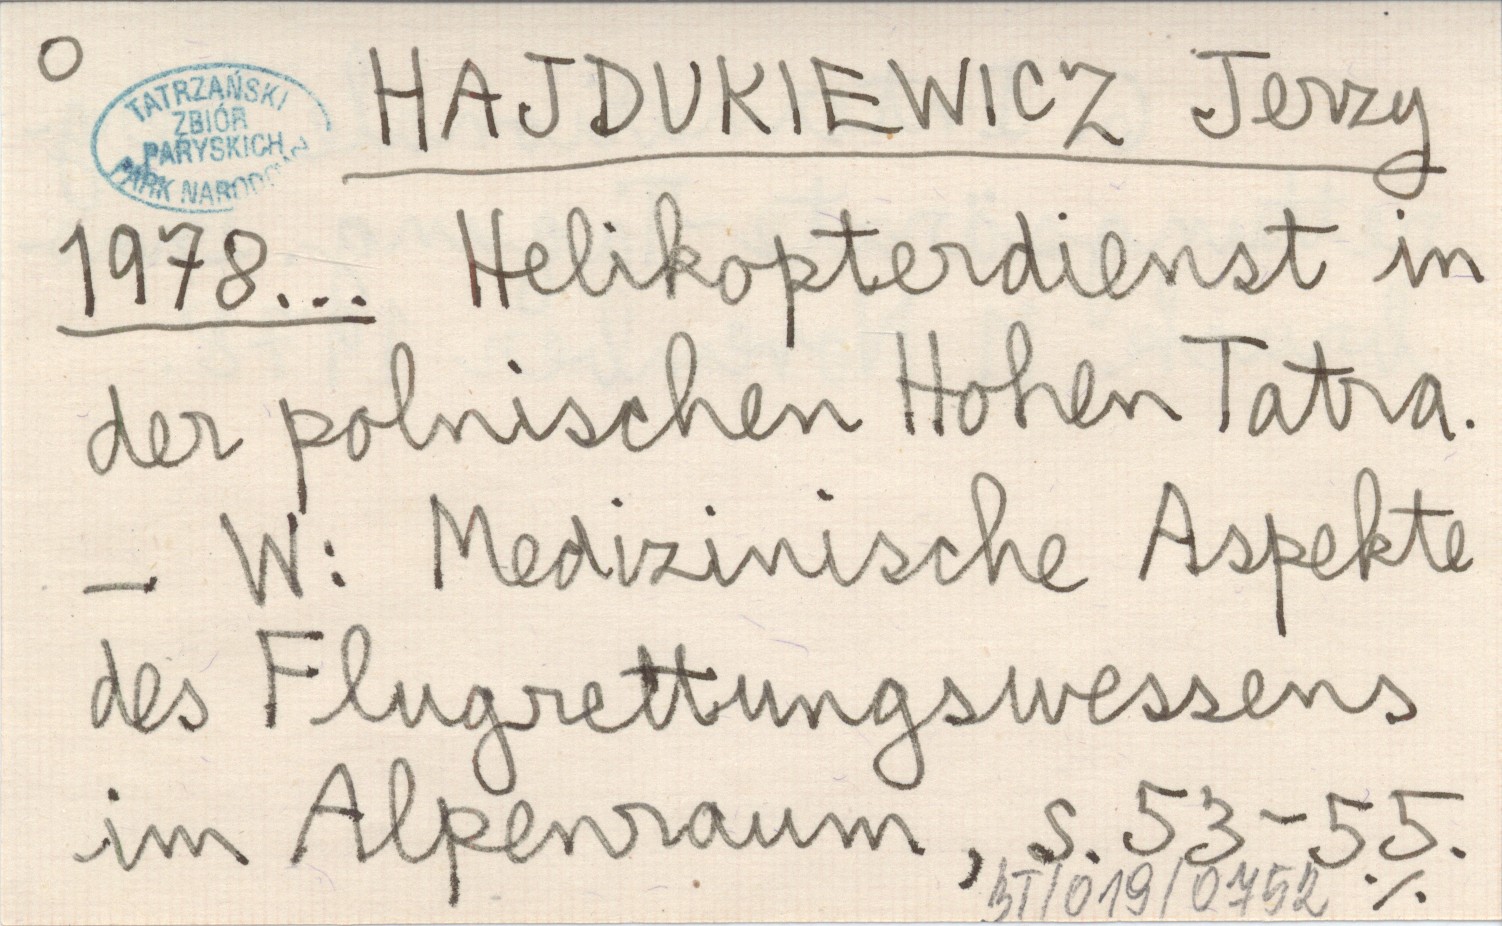 O
TATRZAŃSKI
ZBIÓR
PARYSKICH
PARK NARODOWY
HAJDUKIEWICZ Jerzy
1978... Helikopterdienst in
der polnischen Hohen Tatra.
– W: Medizinische Aspekte
des Flugrettungswessens
im Alpenraum, s. 53-55.
BT/019/0752 ./.